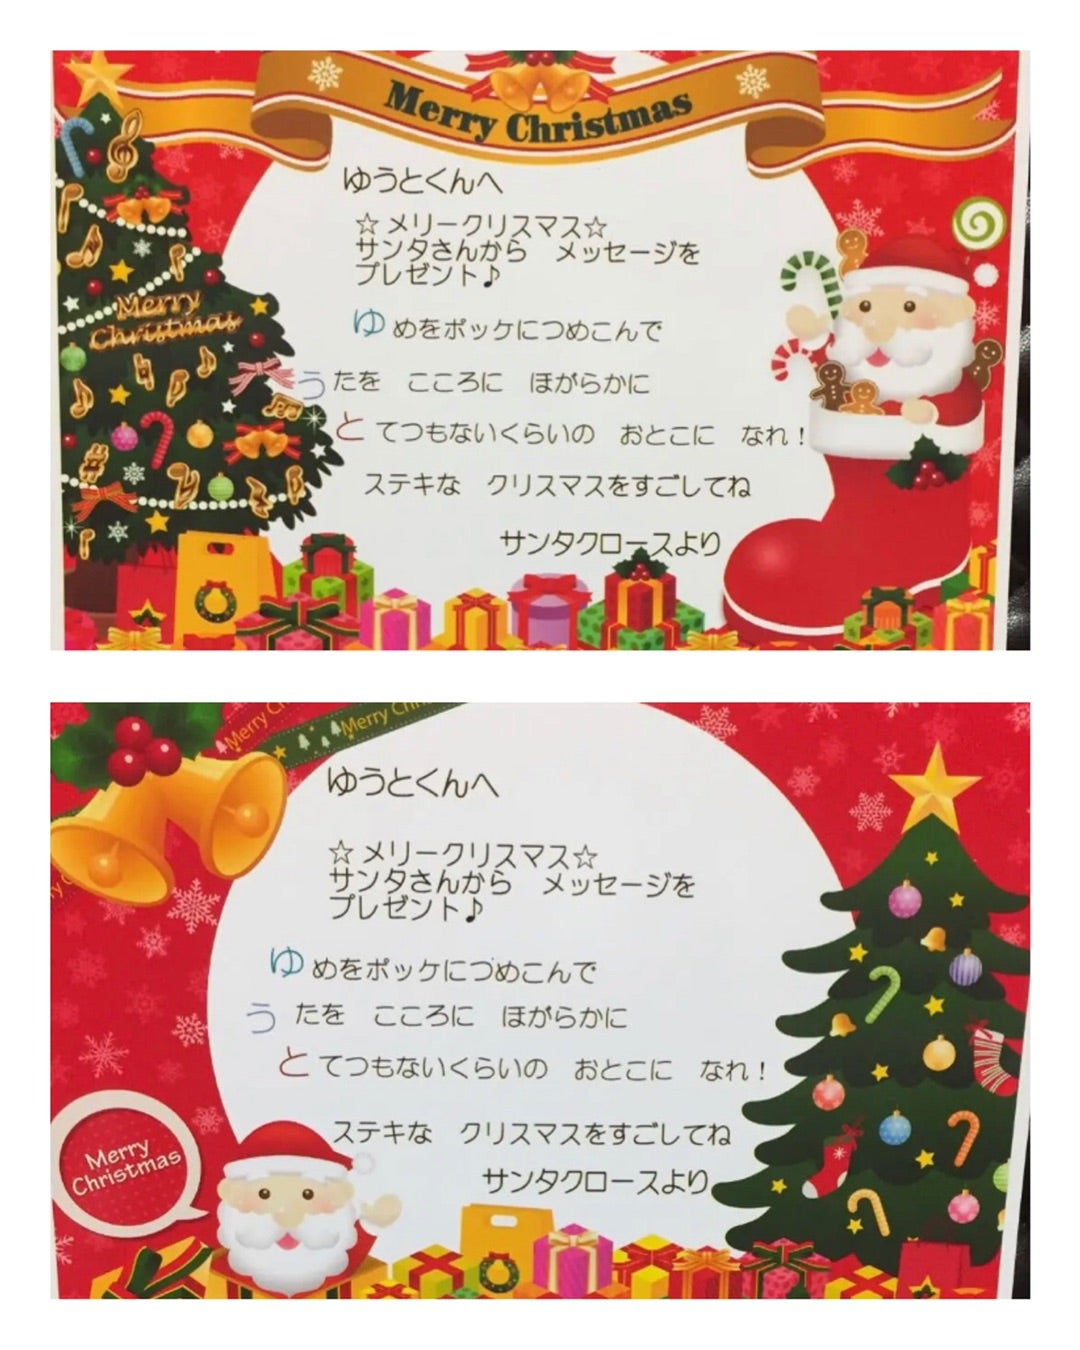 Merry Christmas
Merry
Christmas
ゆうとくんへ
☆メリークリスマス☆
サンタさんから　メッセージを
プレゼント♪
ゆめをポッケにつめこんで
うたを　こころに　ほがらかに
とてつもないくらいの　おとこに　なれ！
ステキな　クリスマスをすごしてね
サンタクロースより
Merry
Merry Chri
ゆうとくんへ
☆メリークリスマス☆
サンタさんから　メッセージを
プレゼント♪
ゆめをポッケにつめこんで
うたを　こころに　ほがらかに
とてつもないくらいの　おとこに　なれ！
ステキな　クリスマスをすごしてね
サンタクロースより
Merry
Christmas